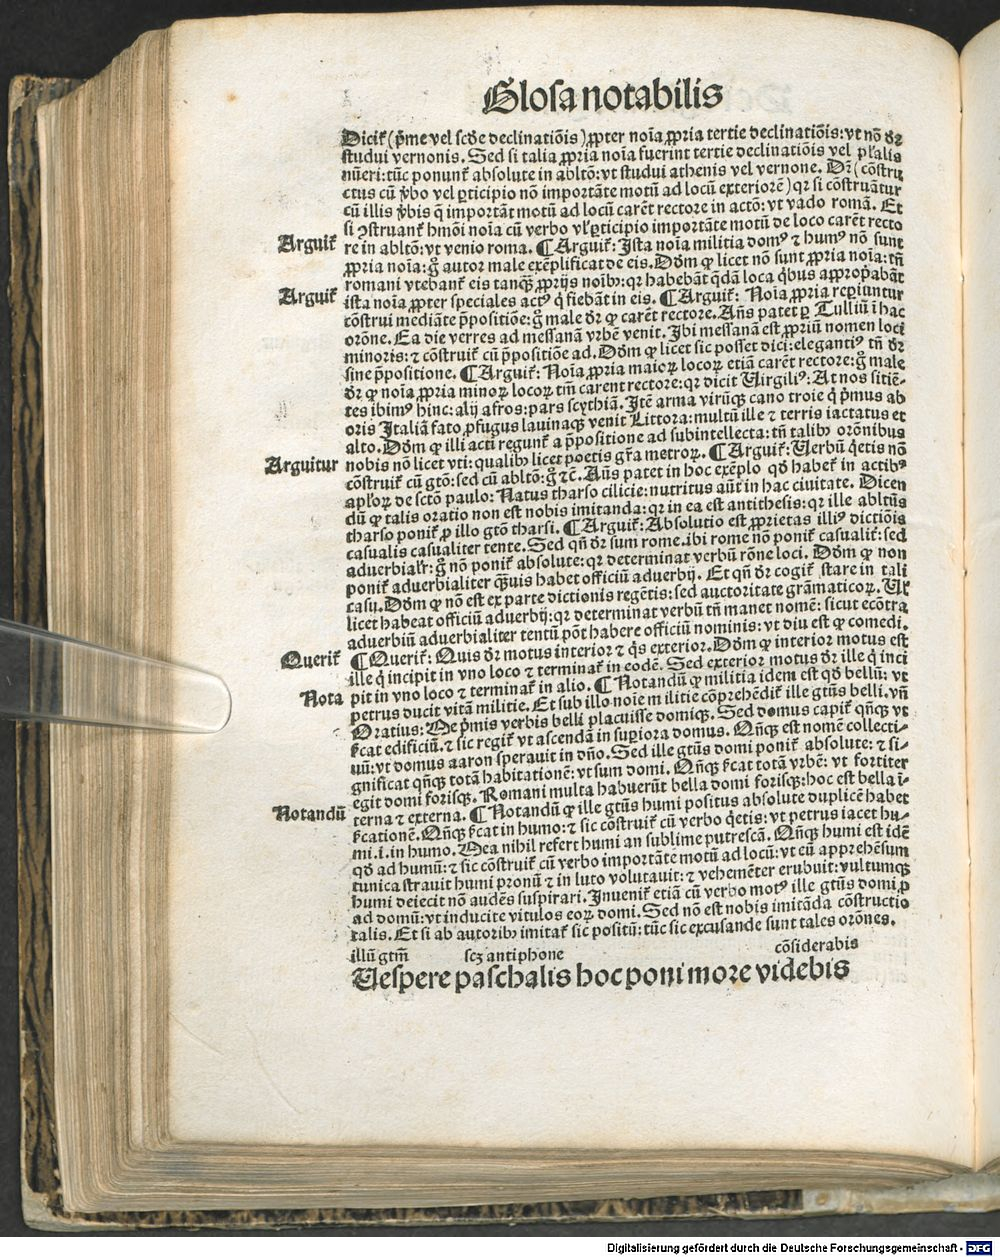 Glosa notabilis
Dicit᷑ (p̄me vel scd̄e declinatiōis) ꝓpter noīa ꝓpria tertie declinatiōis: vt nō dr̄
studui vernonis. Sed si talia ꝓpria noīa fuerint tertie declinatiōis vel pl̄alis
nūeri: tūc ponunt᷑ absolute in abltō: vt studui athenis vel vernone. Dr̄ (cōstru
ctus cū v̄bo vel ꝑticipio nō importāte motū ad locū exteriorē) qr si cōstruātur
cū illis v̄bis q̄ importāt motū ad locū carēt rectore in actō: vt vado romā. Et
si ꝯstruant᷑ hmōi noīa cū verbo vl̓ ꝑticipio importāte motū de loco carēt recto
Arguit᷑ re in abltō: vt venio roma. ¶ Arguit᷑: Ista noīa militia domꝰ ⁊ humꝰ nō sunt
ꝓpria noīa: g̊ autor male exēplificat de eis. Dōm ꝙ licet nō sunt ꝓpria noīa: tn̄
romani vtebant᷑ eis tanqꝫ ꝓprijs noībꝰ: qr habebāt qdā loca qbus appropabāt
Arguit᷑ ista noīa ꝓpter speciales actꝰ q̇ fiebāt in eis. ¶ Arguit᷑: Noīa ꝓpria reꝑiuntur
cōstrui mediāte p̄positiōe: g̊ male dr̄ ꝙ carēt rectore. Añs patet ꝑ Tulliū ī hac
orōne. Ea die verres ad messanā vrbē venit. Ibi messanā est ꝓpriū nomen loci
minoris: ⁊ cōstruit᷑ cū p̄positiōe ad. Dōm ꝙ licet sic posset dici: elegantiꝰ tn̄ dr̄
sine p̄positione. ¶ Arguit᷑: Noīa ꝓpria maioꝝ locoꝝ etiā carēt rectore: g̊ male
dr̄ ꝙ noīa ꝓpria minoꝝ locoꝝ tm̄ carent rectore: qr dicit Virgiliꝰ: At nos sitiē-
tes ibimꝰ hinc: alij afros: pars scythiā. Itē arma virūqꝫ cano troie q̇ p̄mus ab
oris Italiā fato ꝓfugus lauinaqꝫ venit Littora: multū ille ⁊ terris iactatus et
alto. Dōm ꝙ illi acti regunt᷑ a p̄positione ad subintellecta: tn̄ talibꝰ orōnibus
Arguitur nobis nō licet vti: qualibꝰ licet poetis gr̄a metroꝝ. ¶ Arguit᷑: Uerbū q̇etis nō
cōstruit᷑ cū gtō: sed cū abltō: g̊ ⁊c̄. Añs patet in hoc exēplo qd̄ habet᷑ in actibꝰ
apl̓oꝝ de sctō paulo: Natus tharso cilicie: nutritus aūt in hac ciuitate. Dicen
dū ꝙ talis oratio non est nobis imitanda: qr in ea est antithesis: qr ille abltūs
tharso ponit᷑ ꝓ illo gtō tharsi. ¶ Arguit᷑: Absolutio est ꝓprietas illiꝰ dictiōis
casualis casualiter tente. Sed qn̄ dr̄ sum rome. ibi rome nō ponit᷑ casualit᷑: sed
aduerbialr̄: g̊ nō ponit᷑ absolute: qr determinat verbū rōne loci. Dōm ꝙ non
ponit᷑ aduerbialiter qꝫuis habet officiū aduerbij. Et qn̄ dr̄ cogit᷑ stare in tali
casu. Dōm ꝙ nō est ex parte dictionis regētis: sed auctoritate grāmaticoꝝ. Ul̓
licet habeat officiū aduerbij: qr determinat verbū tn̄ manet nomē: sicut ecōtra
aduerbiū aduerbialiter tentū pōt habere officiū nominis: vt diu est ꝙ comedi.
Querit᷑ ¶ Querit᷑: Quis dr̄ motus interior ⁊ q̇s exterior. Dōm ꝙ interior motus est
ille q̇ incipit in vno loco ⁊ terminat᷑ in eodē. Sed exterior motus dr̄ ille q̇ inci
Nota pit in vno loco ⁊ terminat᷑ in alio. ¶ Notandū ꝙ militia idem est qd̄ bellū: vt
petrus ducit vitā militie. Et sub illo noīe militie cōprehēdit᷑ ille gtūs belli. vn̄
Oratius: Ne p̄mis verbis belli placuisse domiqꝫ. Sed domus capit᷑ qn̄qꝫ vt
ſcat edificiū. ⁊ sic regit᷑ vt ascendā in suꝑiora domus. Qn̄qꝫ est nomē collecti-
uū: vt domus aaron sperauit in dn̄o. Sed ille gtūs domi ponit᷑ absolute: ⁊ si-
gnificat qn̄qꝫ totā habitationē: vt sum domi. Qn̄qꝫ ſcat totā vrbē: vt fortiter
egit domi forisqꝫ. Romani multa habuerūt bella domi forisqꝫ: hoc est bella ī-
Notandū terna ⁊ externa. ¶ Notandū ꝙ ille gtūs humi positus absolute duplicē habet
ſcationē. Qn̄qꝫ ſcat in humo: ⁊ sic cōstruit᷑ cū verbo q̇etis: vt petrus iacet hu-
mi. i. in humo. Nea nihil refert humi an sublime putrescā. Qn̄qꝫ humi est idē
qd̄ ad humū: ⁊ sic cōstruit᷑ cū verbo importāte motū ad locū: vt eū apprehēsum
tunica strauit humi pronū ⁊ in luto volutauit: ⁊ vehemēter erubuit: vultumqꝫ
humi deiecit nō audēs suspirari. Inuenit᷑ etiā cū verbo motꝰ ille gtūs domi ꝓ
ad domū: vt inducite vitulos eoꝝ domi. Sed nō est nobis imitāda cōstructio
talis. Et si ab autoribꝰ imitat᷑ sic positū: tūc sic excusande sunt tales orōnes.
illū gtm̄ scꝫ antiphone cōsiderabis
Uespere paschalis hoc poni more videbis
Digitalisierung gefördert durch die Deutsche Forschungsgemeinschaft - DFG